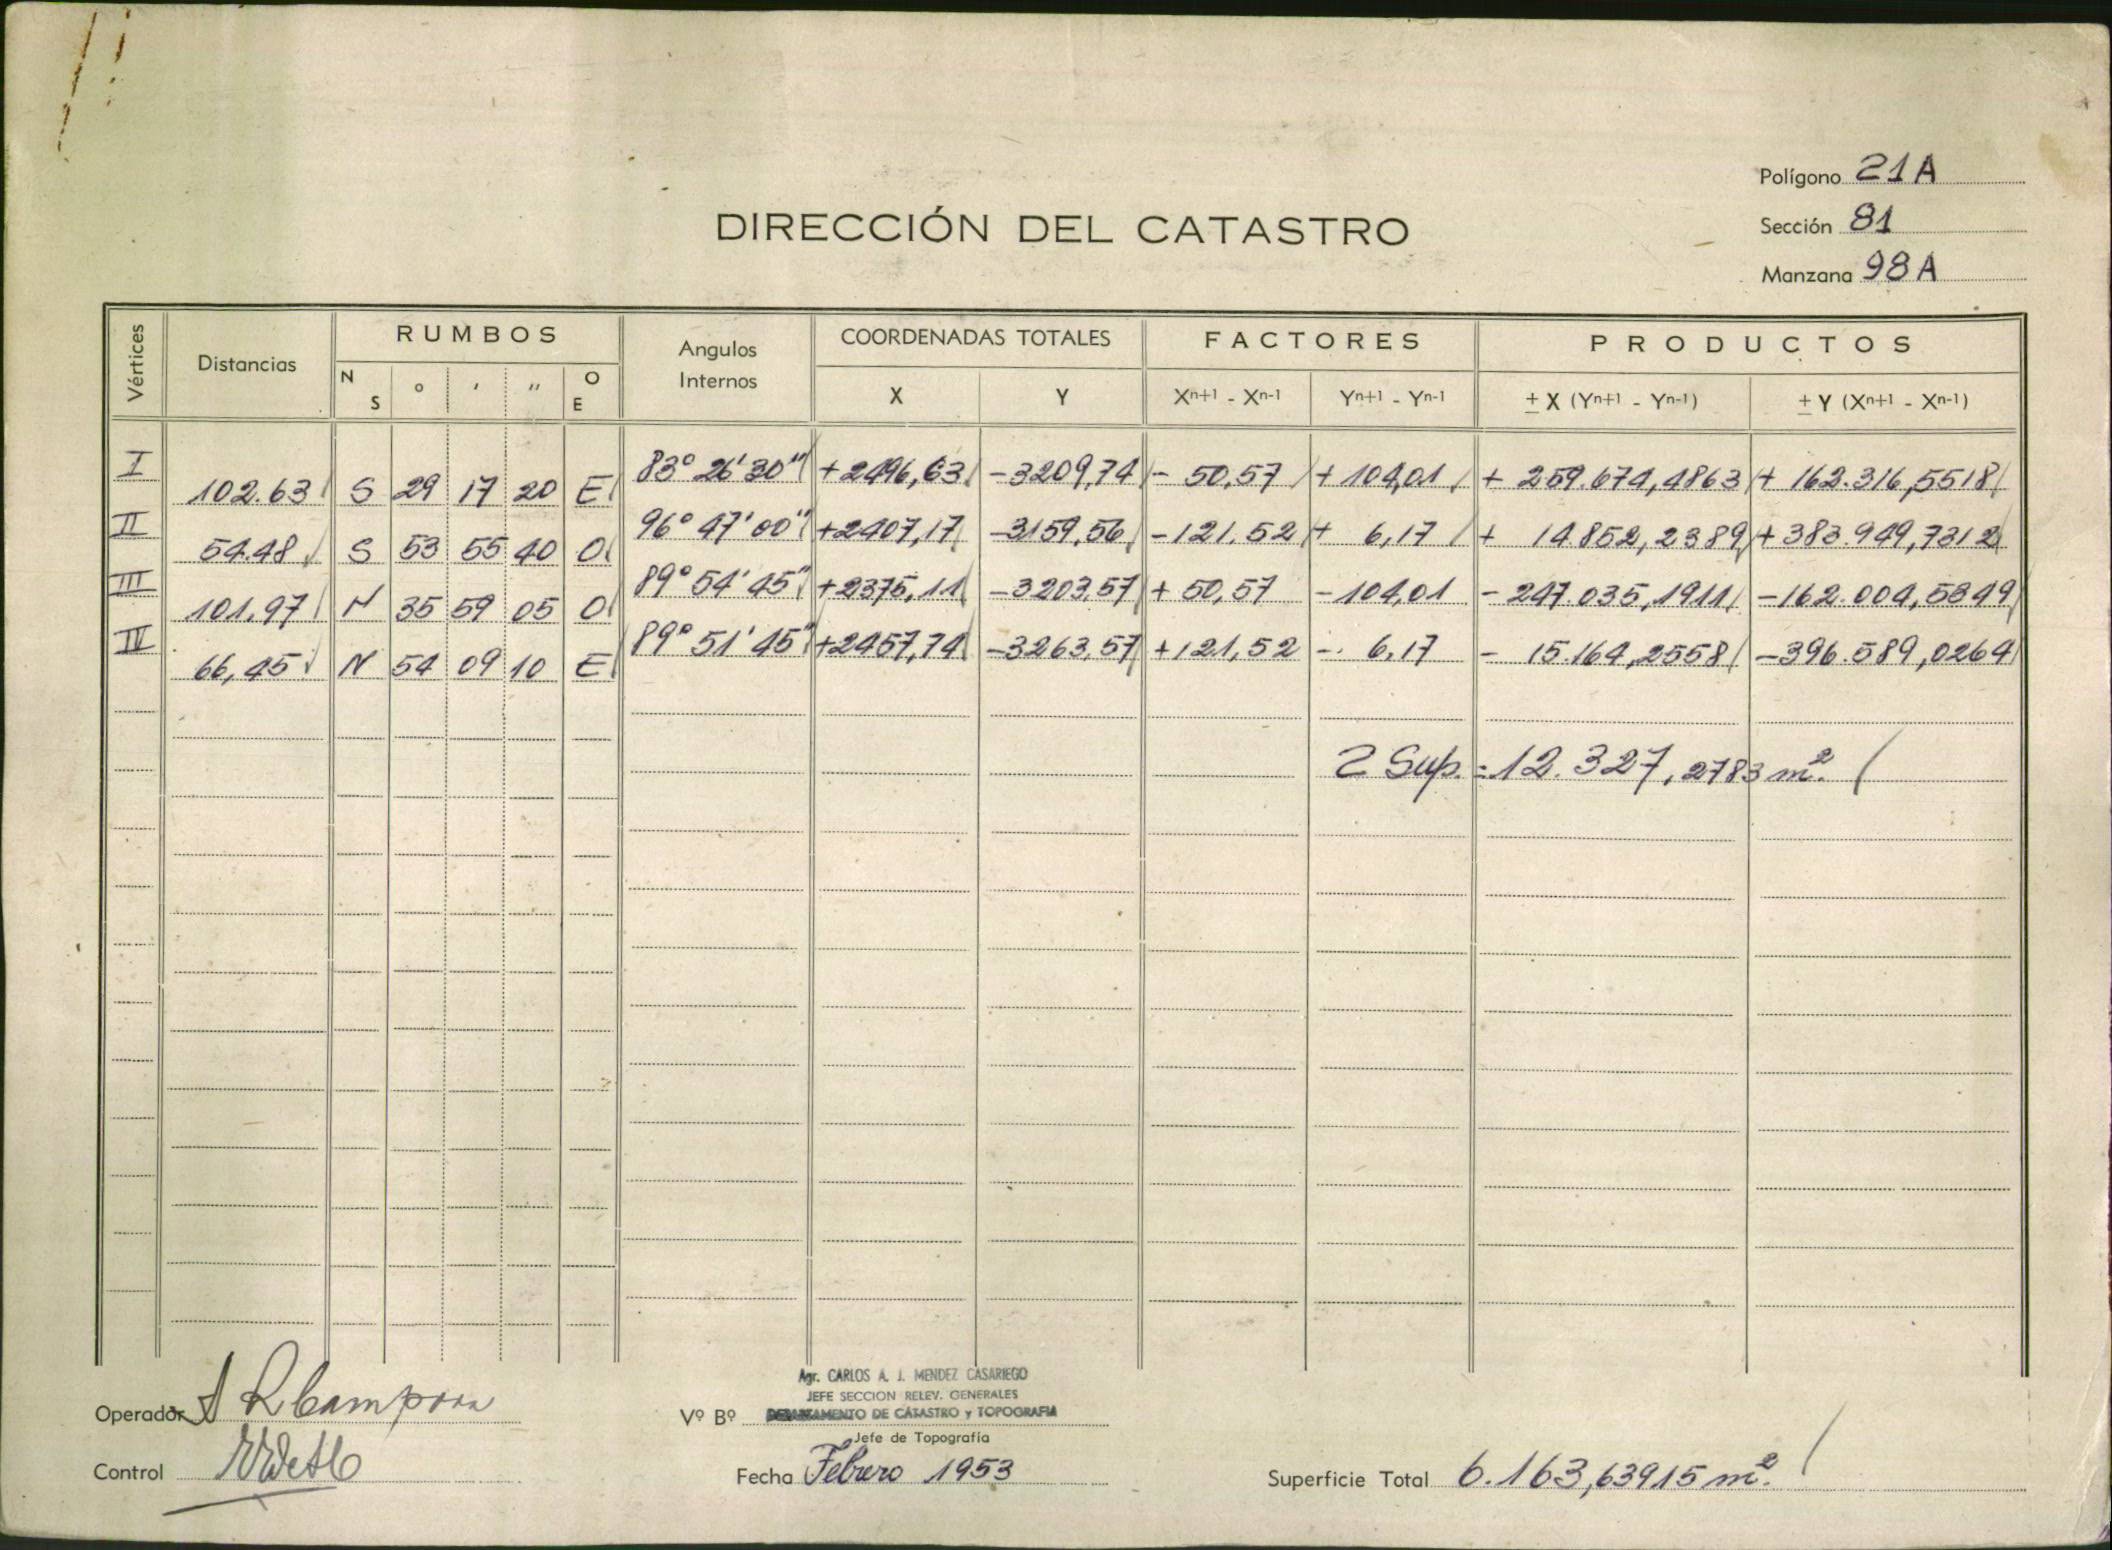 Polígono 21A
Sección 81
Manzana 98A
DIRECCIÓN DEL CATASTRO
Vértices Distancias RUMBOS Angulos Internos COORDENADAS TOTALES FACTORES PRODUCTOS
N S ° ' " O E X Y Xn+1 - Xn-1 Yn+1 - Yn-1 ± X (Yn+1 - Yn-1) ± Y (Xn+1 - Xn-1)
I 102.63 S 29 17 20 E 83° 26' 30" +2496,63 -3209,74 - 50,57 + 104,01 + 259.674,4863 + 162.316,5518
II 54.48 S 53 55 40 O 96° 47' 00" +2407,17 -3159,56 -121.52 + 6,17 + 14.852,2389 +383.949,7312
III 101.97 N 35 59 05 O 89° 54' 45" +2375,11 -3203,57 + 50,57 -104,01 - 247.035,1911 -162.004,5349
IV 66,45 N 54 09 10 E 89° 51' 45" +2457,74 -3263,57 +121,52 - 6,17 - 15.164,2558 -396.589,0264
2 Sup. = 12.327,2783 m².
Operador
Control
Vº Bº
Agr. CARLOS A. J. MENDEZ CASARIEGO
JEFE SECCION RELEV. GENERALES
DEPARTAMENTO DE CATASTRO y TOPOGRAFIA
Jefe de Topografía
Fecha Febrero 1953
Superficie Total 6.163,63915 m².